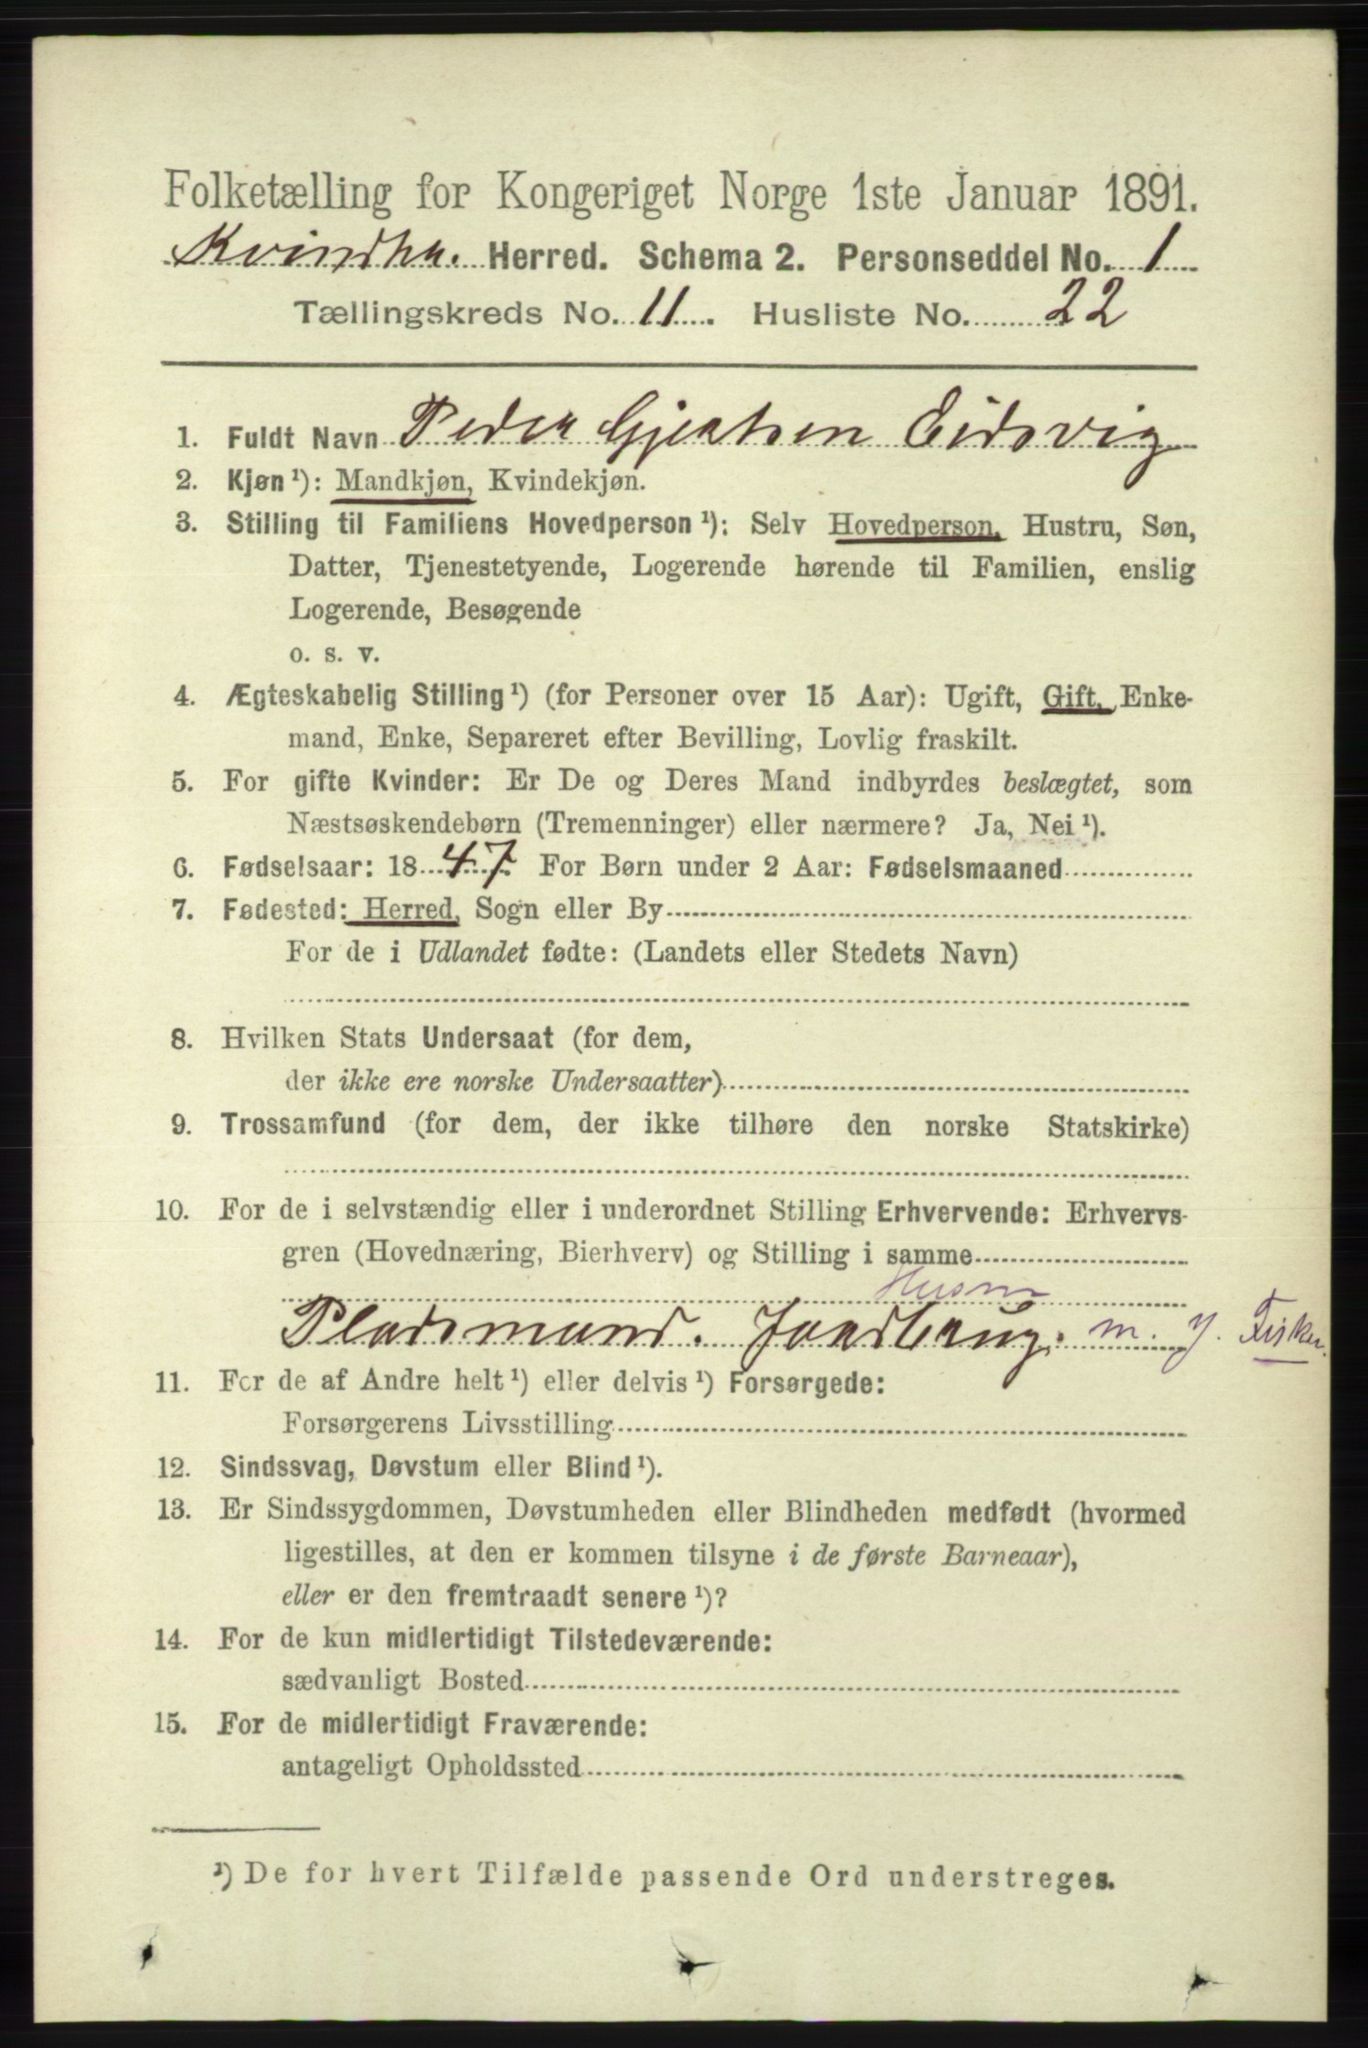 Folketælling for Kongeriget Norge 1ste Januar 1891.
Kvindhr. Herred. Schema 2. Personseddel No. 1
Tællingskreds No. 11. Husliste No. 22
1. Fuldt Navn Peder Gjertsen Eidsvig
2. Kjøn ¹): Mandkjøn, Kvindekjøn.
3. Stilling til Familiens Hovedperson ¹): Selv Hovedperson, Hustru, Søn,
Datter, Tjenestetyende, Logerende hørende til Familien, enslig
Logerende, Besøgende
o. s. v.
4. Ægteskabelig Stilling ¹) (for Personer over 15 Aar): Ugift, Gift, Enke-
mand, Enke, Separeret efter Bevilling, Lovlig fraskilt.
5. For gifte Kvinder: Er De og Deres Mand indbyrdes beslægtet, som
Næstsøskendebørn (Tremenninger) eller nærmere? Ja, Nei ¹).
6. Fødselsaar: 1847. For Børn under 2 Aar: Fødselsmaaned
7. Fødested: Herred, Sogn eller By
For de i Udlandet fødte: (Landets eller Stedets Navn)
8. Hvilken Stats Undersaat (for dem,
der ikke ere norske Undersaatter)
9. Trossamfund (for dem, der ikke tilhøre den norske Statskirke)
10. For de i selvstændig eller i underordnet Stilling Erhvervende: Erhvervs-
gren (Hovednæring, Bierhverv) og Stilling i samme
Husm
Pladsmand. Jordbrug. m. J. Fisker.
11. For de af Andre helt ¹) eller delvis ¹) Forsørgede:
Forsørgerens Livsstilling
12. Sindssvag, Døvstum eller Blind ¹).
13. Er Sindssygdommen, Døvstumheden eller Blindheden medfødt (hvormed
ligestilles, at den er kommen tilsyne i de første Barneaar),
eller er den fremtraadt senere ¹)?
14. For de kun midlertidigt Tilstedeværende:
sædvanligt Bosted
15. For de midlertidigt Fraværende:
antageligt Opholdssted
¹) De for hvert Tilfælde passende Ord understreges.